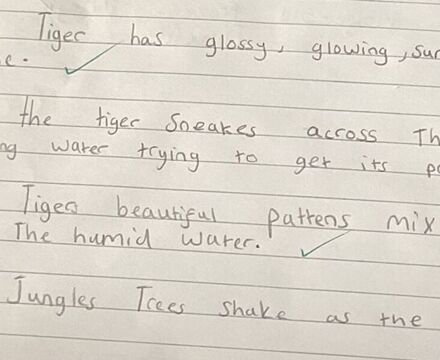 Tiger has glossy, glowing, sur
e.
the tiger Sneakes across Th
ng water trying to get its po
Tigers beautiful pattens mix
The humid water.
Jungles Trees shake as the